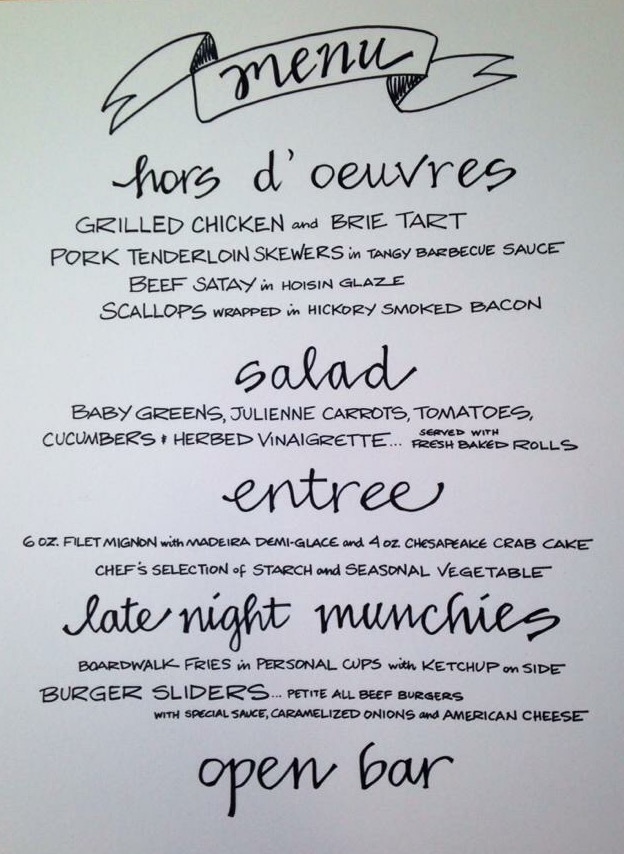 menu
hors d'oeuvres
GRILLED CHICKEN and BRIE TART
PORK TENDERLOIN SKEWERS in TANGY BARBECUE SAUCE
BEEF SATAY in HOISIN GLAZE
SCALLOPS WRAPPED in HICKORY SMOKED BACON
salad
BABY GREENS, JULIENNE CARROTS, TOMATOES,
CUCUMBERS & HERBED VINAIGRETTE... SERVED WITH FRESH BAKED ROLLS
entree
6 OZ. FILET MIGNON with MADEIRA DEMI-GLACE and 4 OZ. CHESAPEAKE CRAB CAKE
CHEF'S SELECTION of STARCH and SEASONAL VEGETABLE
late night munchies
BOARDWALK FRIES in PERSONAL CUPS with KETCHUP on SIDE
BURGER SLIDERS... PETITE ALL BEEF BURGERS
WITH SPECIAL SAUCE, CARAMELIZED ONIONS and AMERICAN CHEESE
open bar